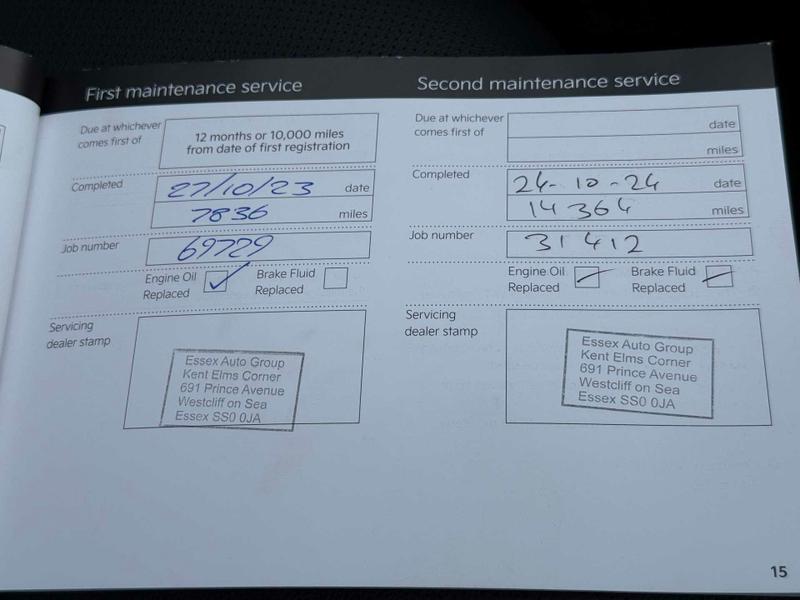 First maintenance service
Due at whichever
comes first of
12 months or 10,000 miles
from date of first registration
Completed
27/10/23 date
7836 miles
Job number
69729
Engine Oil
Replaced
Brake Fluid
Replaced
Servicing
dealer stamp
Essex Auto Group
Kent Elms Corner
691 Prince Avenue
Westcliff on Sea
Essex SS0 0JA
Second maintenance service
Due at whichever
comes first of
date
miles
Completed
24-10-24 date
14364 miles
Job number
31412
Engine Oil
Replaced
Brake Fluid
Replaced
Servicing
dealer stamp
Essex Auto Group
Kent Elms Corner
691 Prince Avenue
Westcliff on Sea
Essex SS0 0JA
15